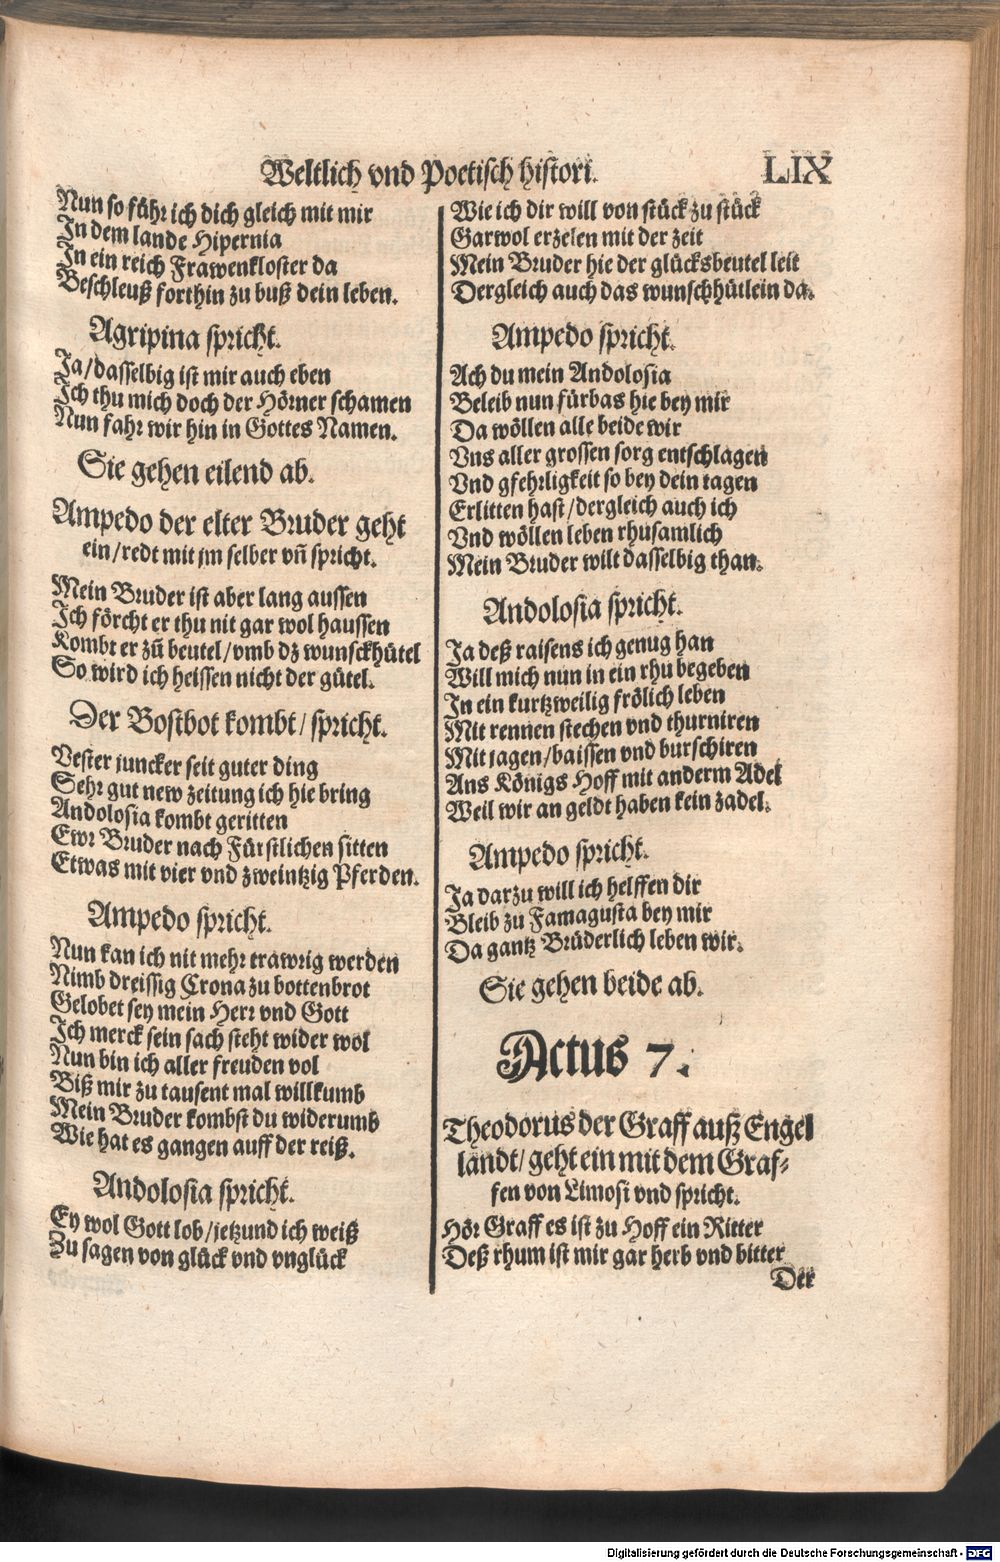 Weltlich vnd Poetisch histori.
LIX
Nun so führ ich dich gleich mit mir
In dem lande Hipernia
In ein reich Frawenkloster da
Beschleuß forthin zu buß dein leben.
Agripina spricht.
Ja/dasselbig ist mir auch eben
Ich thu mich doch der Hörner schamen
Nun fahr wir hin in Gottes Namen.
Sie gehen eilend ab.
Ampedo der elter Bruder geht
ein/redt mit jm selber vñ spricht.
Mein Bruder ist aber lang aussen
Ich förcht er thu nit gar wol haussen
Kombt er zũ beutel/vmb dz wunsckhütel
So wird ich heissen nicht der gütel.
Der Bostbot kombt/ spricht.
Vester juncker seit guter ding
Sehr gut new zeitung ich hie bring
Andolosia kombt geritten
Ewr Bruder nach Fürstlichen sitten
Etwas mit vier vnd zweintzig Pferden.
Ampedo spricht.
Nun kan ich nit mehr trawrig werden
Nimb dreissig Crona zu bottenbrot
Gelobet sey mein Herr vnd Gott
Ich merck sein sach steht wider wol
Nun bin ich aller freuden vol
Biß mir zu tausent mal willkumb
Mein Bruder kombst du widerumb
Wie hat es gangen auff der reiß.
Andolosia spricht.
Ey wol Gott lob/jetzund ich weiß
Zu sagen von glück vnd vnglück
Wie ich dir will von stück zu stück
Garwol erzelen mit der zeit
Mein Bruder hie der glücksbeutel leit
Dergleich auch das wunschhütlein da.
Ampedo spricht.
Ach du mein Andolosia
Beleib nun fürbas hie bey mir
Da wöllen alle beide wir
Vns aller grossen sorg entschlagen
Vnd gfehrligkeit so bey dein tagen
Erlitten hast/dergleich auch ich
Vnd wöllen leben rhusamlich
Mein Bruder wilt dasselbig than.
Andolosia spricht.
Ja deß raisens ich genug han
Will mich nun in ein rhu begeben
In ein kurtzweilig frölich leben
Mit rennen stechen vnd thurniren
Mit jagen/baissen vnd burschiren
Ans Königs Hoff mit anderm Adel
Weil wir an geldt haben kein zadel.
Ampedo spricht.
Ja darzu will ich helffen dir
Bleib zu Famagusta bey mir
Da gantz Brüderlich leben wir.
Sie gehen beide ab.
Actus 7.
Theodorus der Graff auß Engel
landt/ geht ein mit dem Graf-
fen von Limosi vnd spricht.
Hör Graff es ist zu Hoff ein Ritter
Deß rhum ist mir gar herb vnd bitter
Der
Digitalisierung gefördert durch die Deutsche Forschungsgemeinschaft - DFG